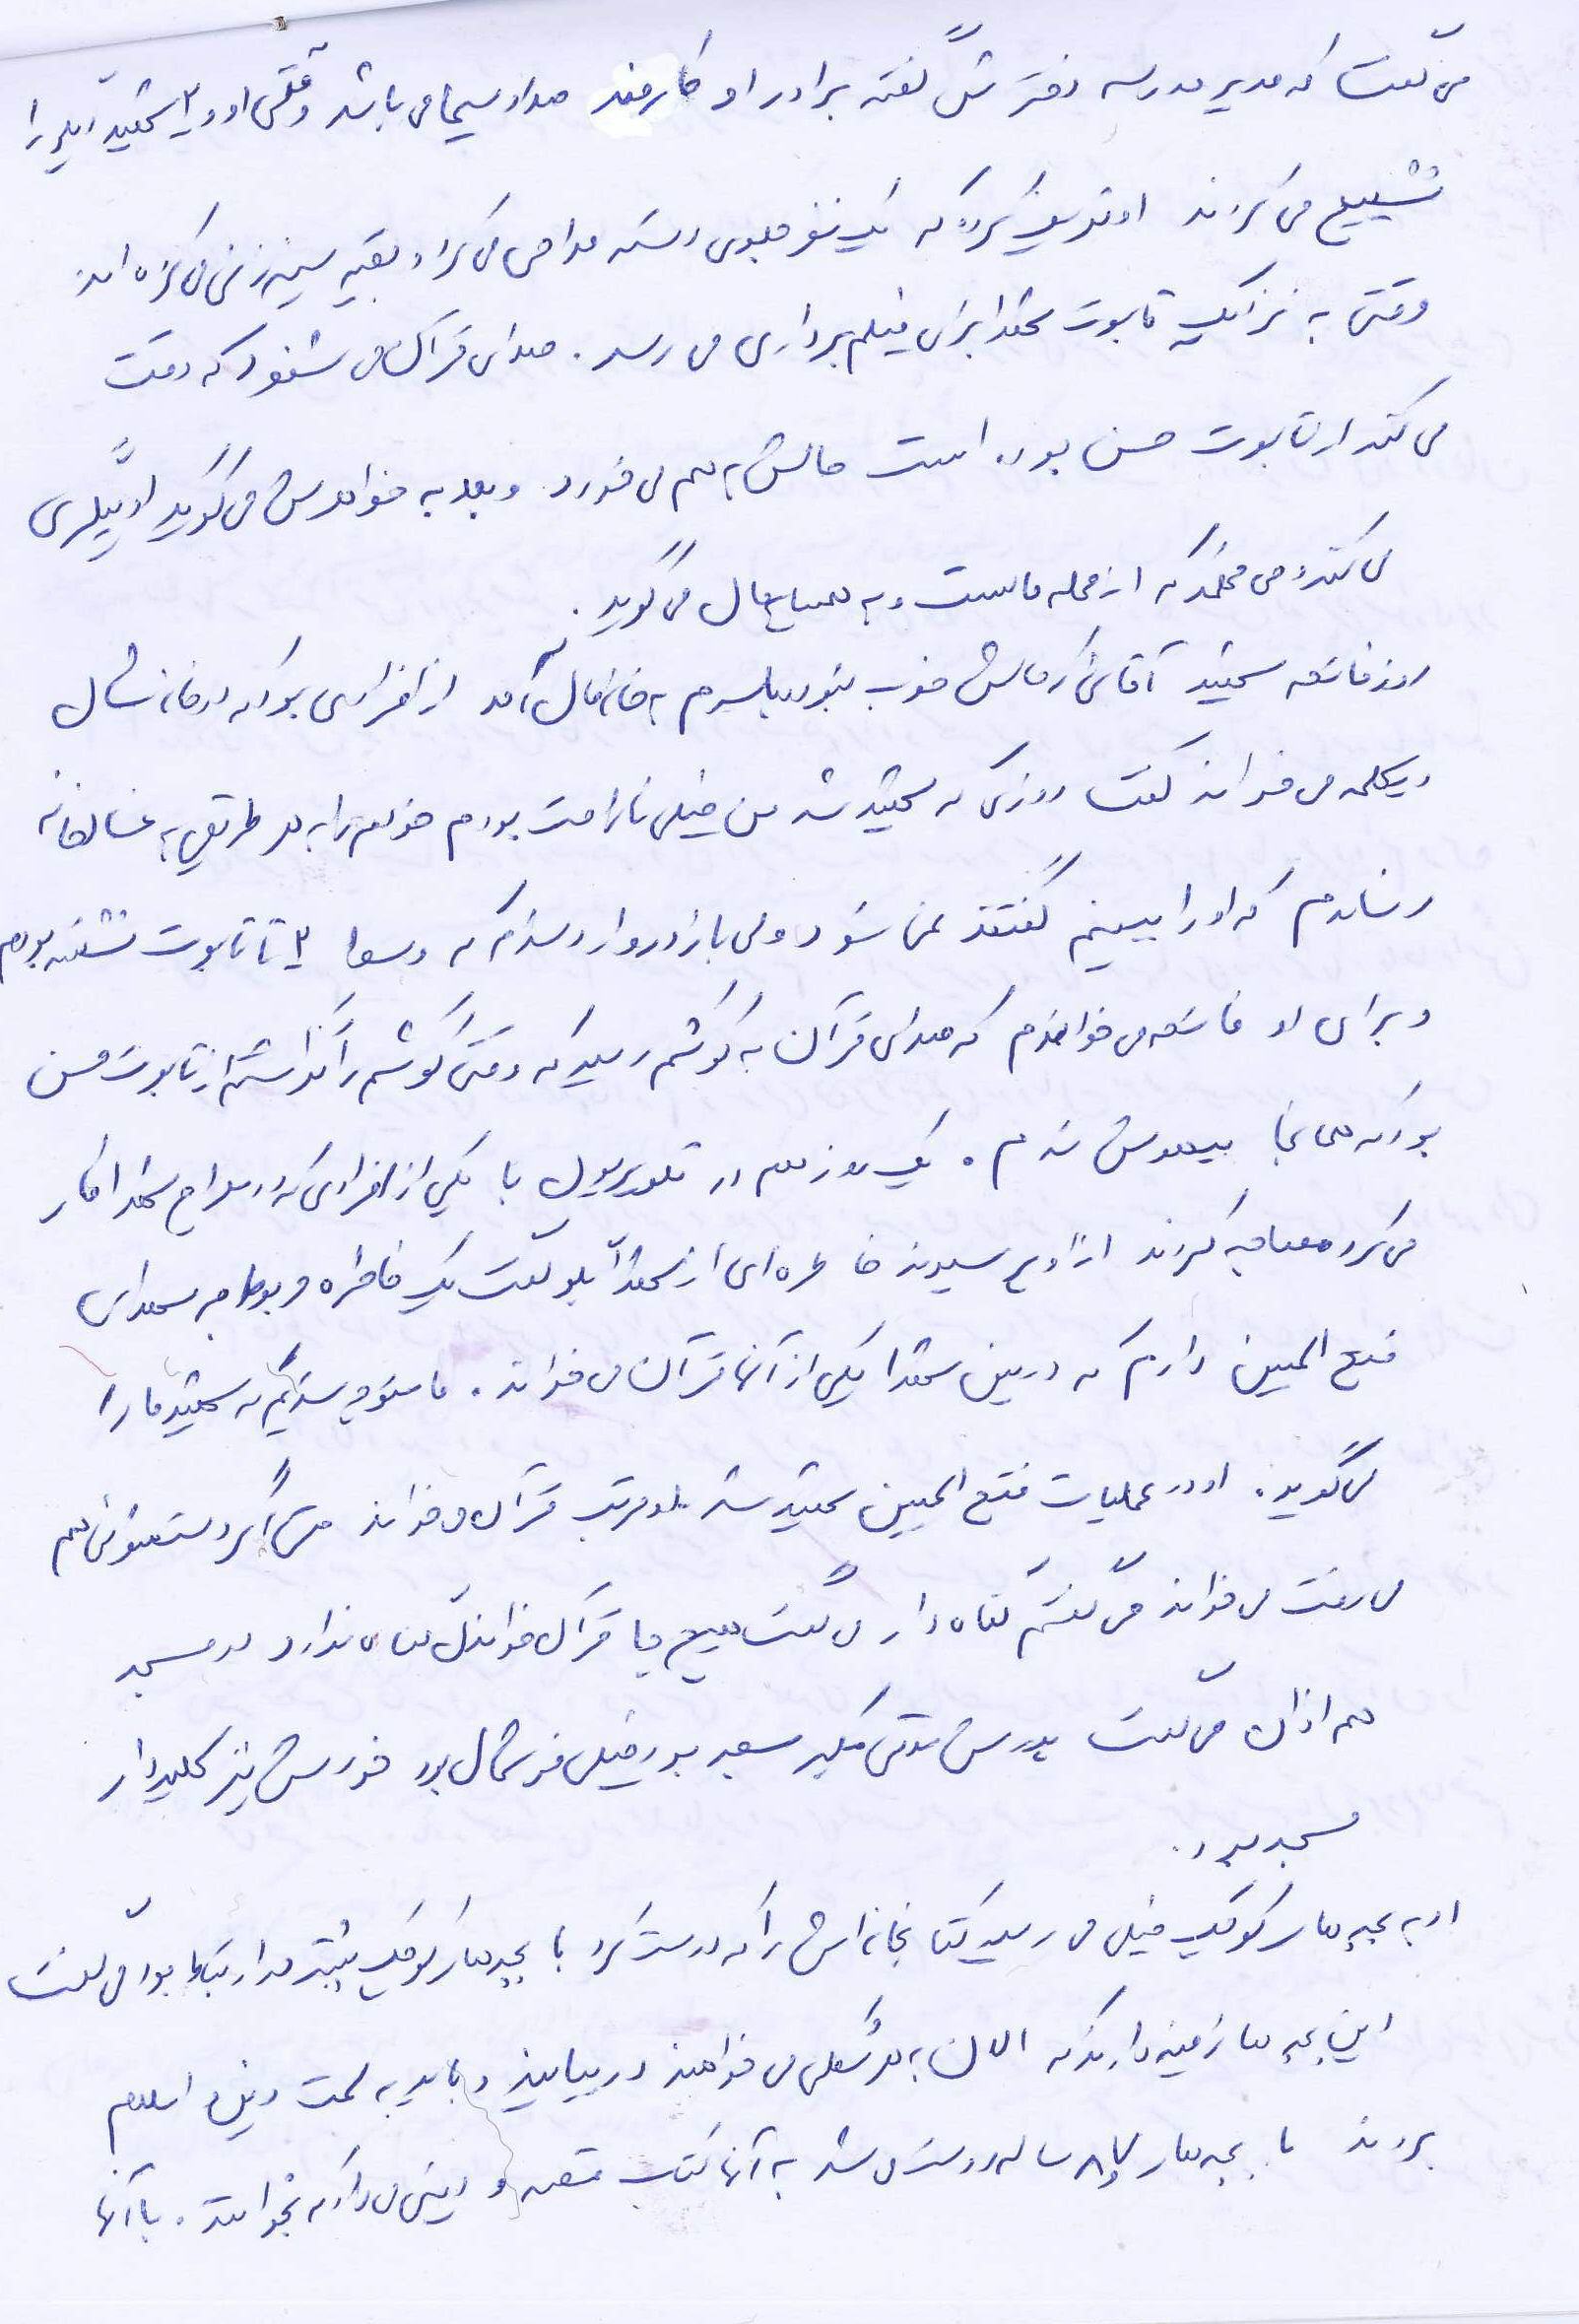 می گفت که مدیر مدرسه دخترش گفته برادر او کارمند صدا و سیما می باشد وقتی او و ۲ شهید دیگر را
تشییع می کردند او تعریف کرد که یک نفر جلوی دسته مداحی می کرد و بقیه سینه زنی می کرده اند
وقتی به نزدیک تابوت شهدا برای فیلمبرداری می رسد. صدای قرآن می شنود که دقت
می کند از تابوت حسن بوده است حالش بهم می خورد و بعد به خواهرش می گوید او پیگیری
می کند و می فهمد که از محله ماست و به همسایه مان می گوید.
روز فاتحه شهید آقائی که حالش خوب نبود با پسرم به خانه مان آمد از افرادی بود که در خانه شان
دیکلمه می خواند گفت روزی که شهید شد من خیلی ناراحت بودم خودم را به هر طریقی به غسالخانه
رساندم که او را ببینم گفتند نمی شود ولی با زور وارد شدم که وسط ۲ تا تابوت نشسته بودم
و برای او فاتحه می خواندم که صدای قرآن به گوشم رسید که وقتی گوشم را گذاشتم از تابوت حسن
بود که همانجا بیهوش شدم. یک روز هم در تلویزیون با یکی از افرادی که در معراج شهدا کار
می کرد مصاحبه کردند از او پرسیدند خاطره ای از شهدا بگو گفت یک خاطره مربوط به شهدای
فتح المبین دارم که در بین شهدا یکی از آنها قرآن می خواند. ما متوجه شدیم که شهید ما را
می گوید. او در عملیات فتح المبین شهید شد. او مرتب قرآن می خواند حتی اگر دستشوئی هم
می رفت می خواند می گفتم گناه دارد می گفت هیچ جا قرآن خواندن گناه ندارد در مسجد
هم اذان می گفت پدرش مدتی مکبر مسجد بود خیلی خوشحال بود خودش نیز کلیددار
مسجد بود.
او به بچه های کوچک خیلی می رسید کتابخانه اش را که درست کرد با بچه های کوچک بیشتر در ارتباط بود می گفت
این بچه ها زمینه دارند که الان به هر شکلی می خواهند در بیایند و باید به سمت دین و اسلام
بروند با بچه های ساله دوست می شد به آنها کتاب قصه و دینی می داد که بخوانند. با آنها